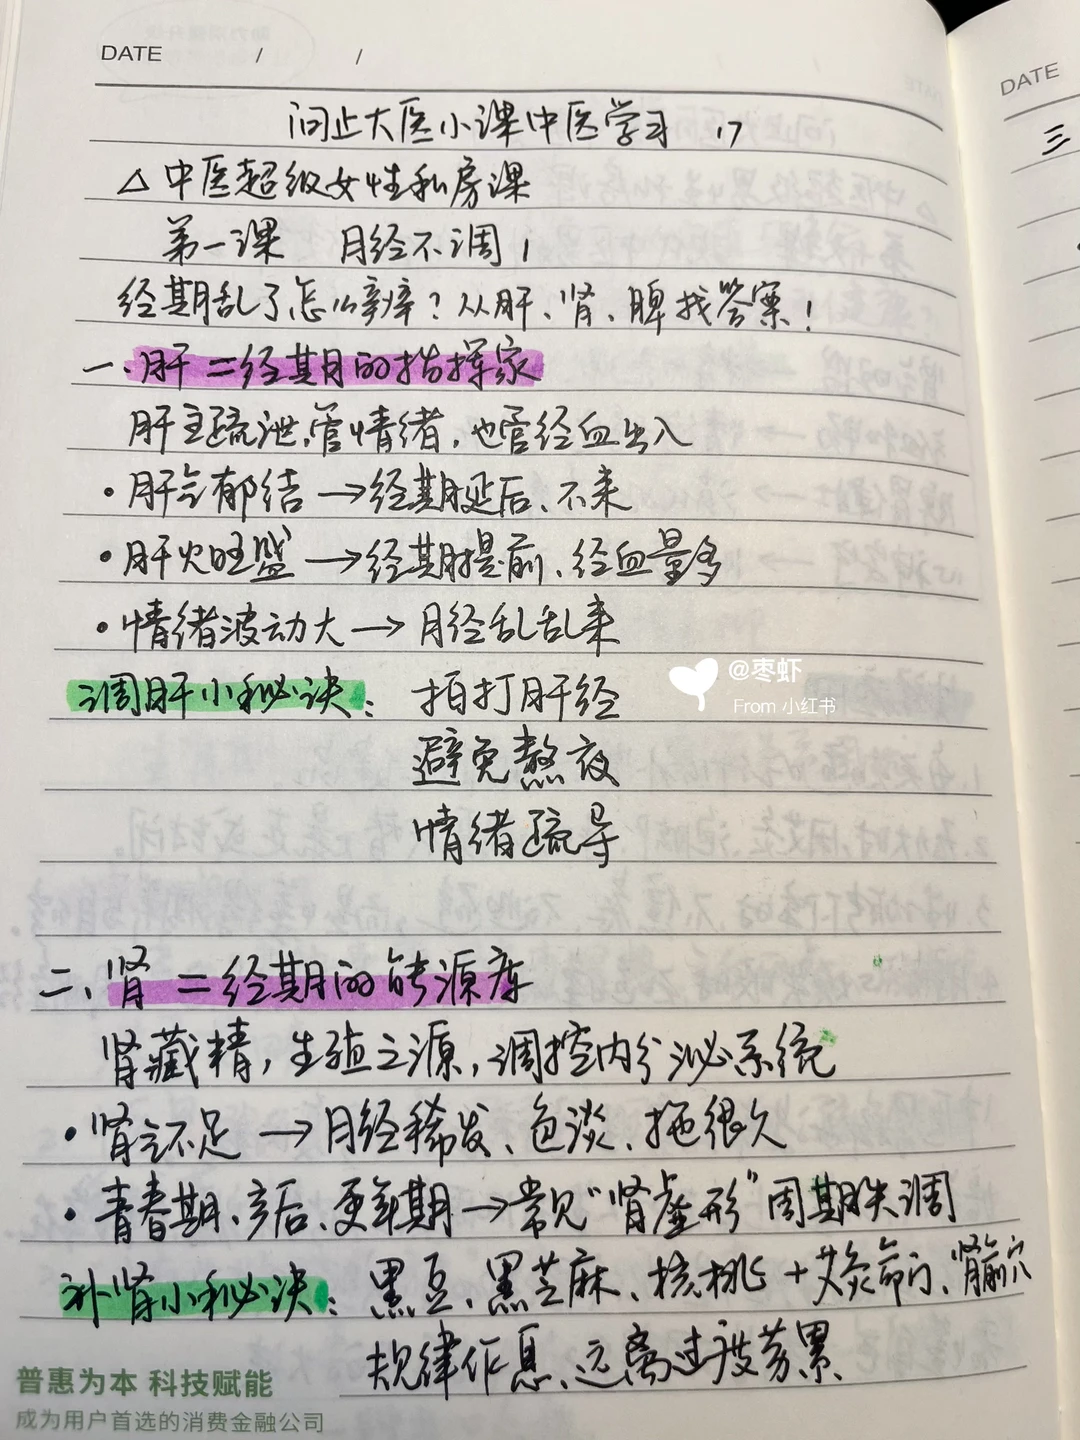 DATE / /
问止大医小课中医学习 17
△ 中医超级女性私房课
第一课 月经不调1
经期乱了怎么辨?从肝、肾、脾找答案!
一.肝=经期的指挥家
肝主疏泄,管情绪,也管经血出入
·肝气郁结→经期延后、不来
·肝火旺盛→经期提前、经血量多
·情绪波动大→月经乱乱来
调肝小秘诀:拍打肝经
避免熬夜
情绪疏导
二、肾=经期的能源库
肾藏精,生殖之源,调控内分泌系统
·肾气不足→月经稀发、色淡、拖很久
·青春期、产后、更年期→常见"肾虚形"周期失调
补肾小秘诀:黑豆、黑芝麻、核桃+艾灸命门、肾俞穴
规律作息、远离过度劳累
@枣虾
From 小红书
普惠为本 科技赋能
成为用户首选的消费金融公司
DATE
三